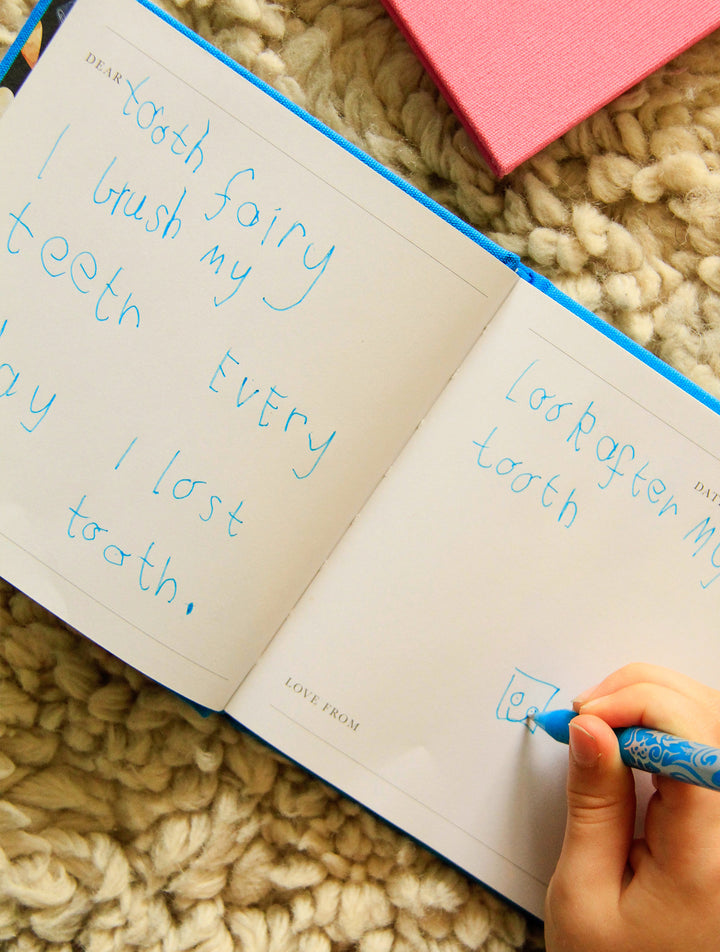 DEAR tooth fairy
I brush my
teeth Every
day I lost
tooth.
Look after my
tooth
LOVE FROM